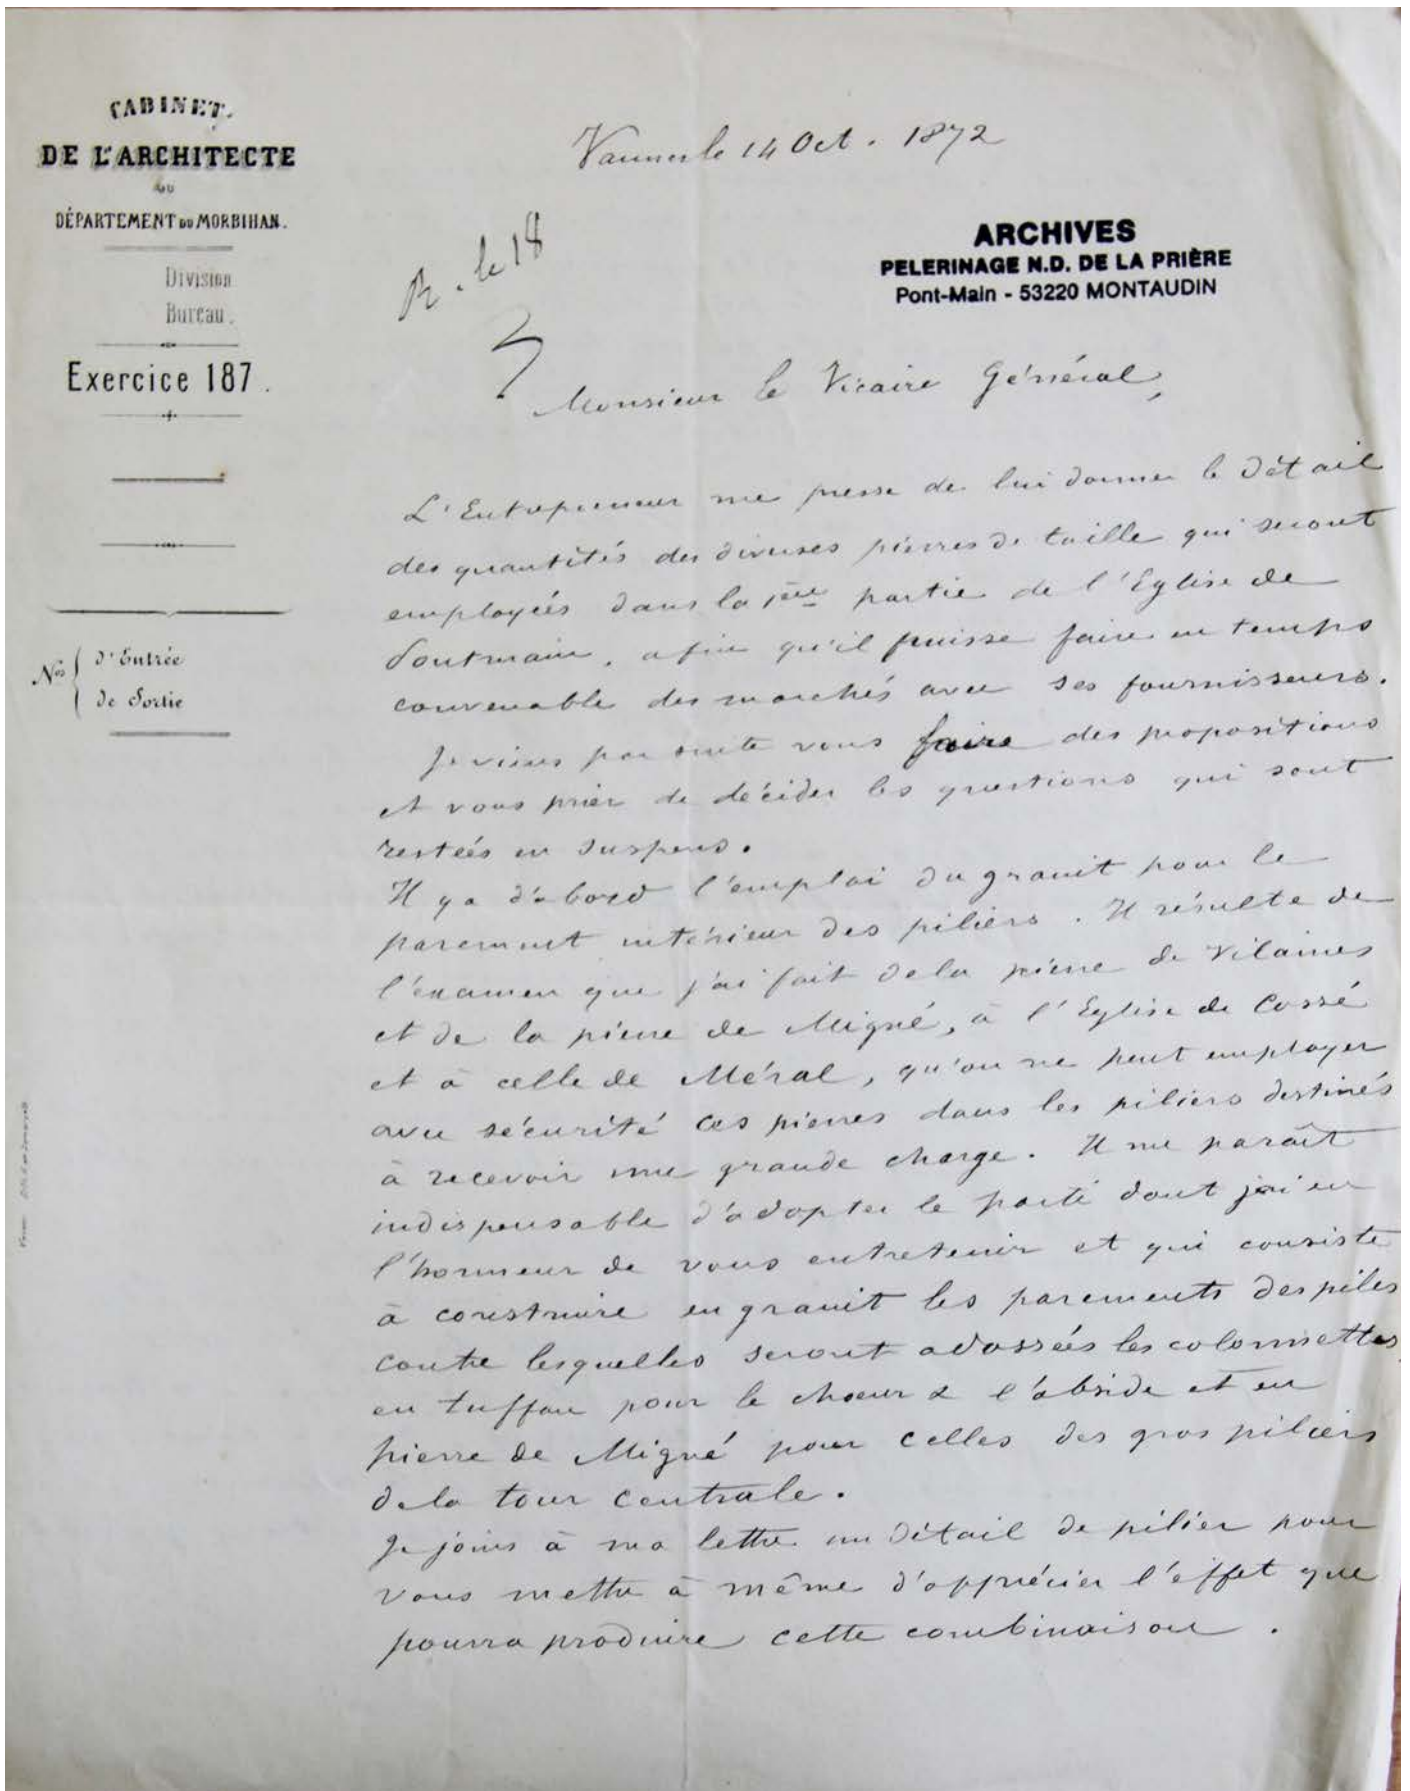 CABINET.
DE L'ARCHITECTE
DU
DÉPARTEMENT DU MORBIHAN.
Division
Bureau.
Exercice 187 .
Nos d'Entrée
de Sortie
Vannes le 14 Oct. 1872
R. le 18
ARCHIVES
PELERINAGE N.D. DE LA PRIÈRE
Pont-Main - 53220 MONTAUDIN
Monsieur le Vicaire Général,
L'Entrepreneur me presse de lui donner le détail
des quantités des diverses pierres de taille qui seront
employées dans la 1ère partie de l'Eglise de
Pontmain, afin qu'il puisse faire en temps
convenable des marchés avec ses fournisseurs.
Je viens par suite vous faire des propositions
et vous prier de décider les questions qui sont
restées en suspens.
Il y a d'abord l'emploi du granit pour le
parement intérieur des piliers. Il résulte de
l'examen que j'ai fait de la pierre de Vilaines
et de la pierre de Migné, à l'Eglise de Cossé
et à celle de Méral, qu'on ne peut employer
avec sécurité ces pierres dans les piliers destinés
à recevoir une grande charge. Il me paraît
indispensable d'adopter le parti dont j'ai eu
l'honneur de vous entretenir et qui consiste
à construire en granit les parements des piles
contre lesquelles seront adossées les colonnettes
en tuffau pour le chœur & l'abside et en
pierre de Migné pour celles des gros piliers
de la tour centrale.
Je joins à ma lettre un détail de pilier pour
vous mettre à même d'apprécier l'effet que
pourra produire cette combinaison.